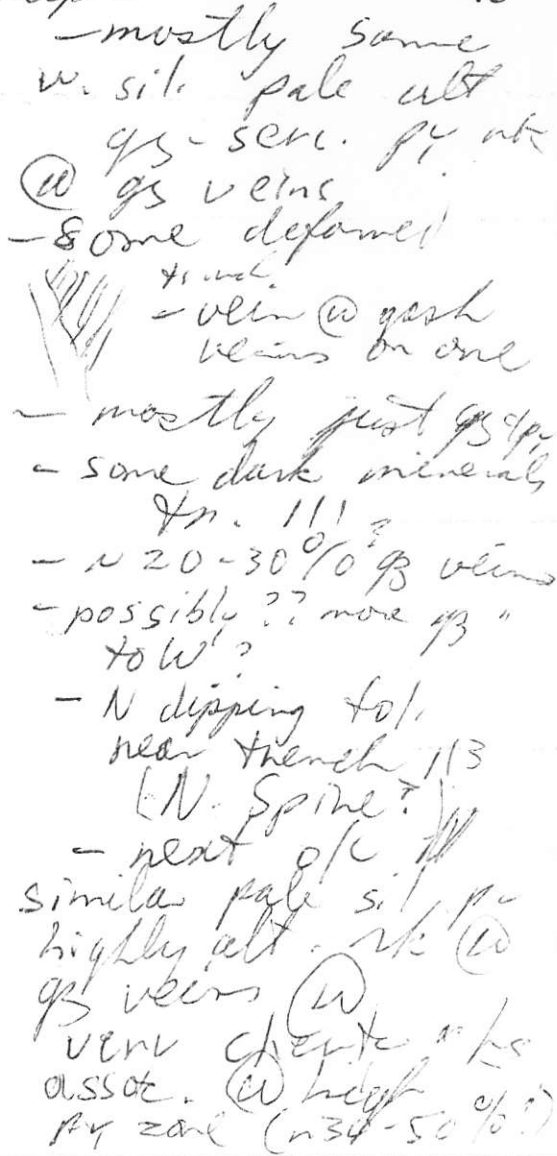 - mostly same
w. sil. pale alt
qz-seri. py rk
@ qz veins
- some deformed
- vein @ gash
veins on one
- mostly just qz + py
- some dark minerals
tn. !!! ?
- ~ 20-30% qz veins
- possibly ?? more qz "
to W ?
- N dipping fol.
near trench 113
(N. Spine?)
- next o/c
similar pale sil, py
highly alt. rk @
qz veins @
very cherty rks
assoc. @ high
py zone (~30-50%!)